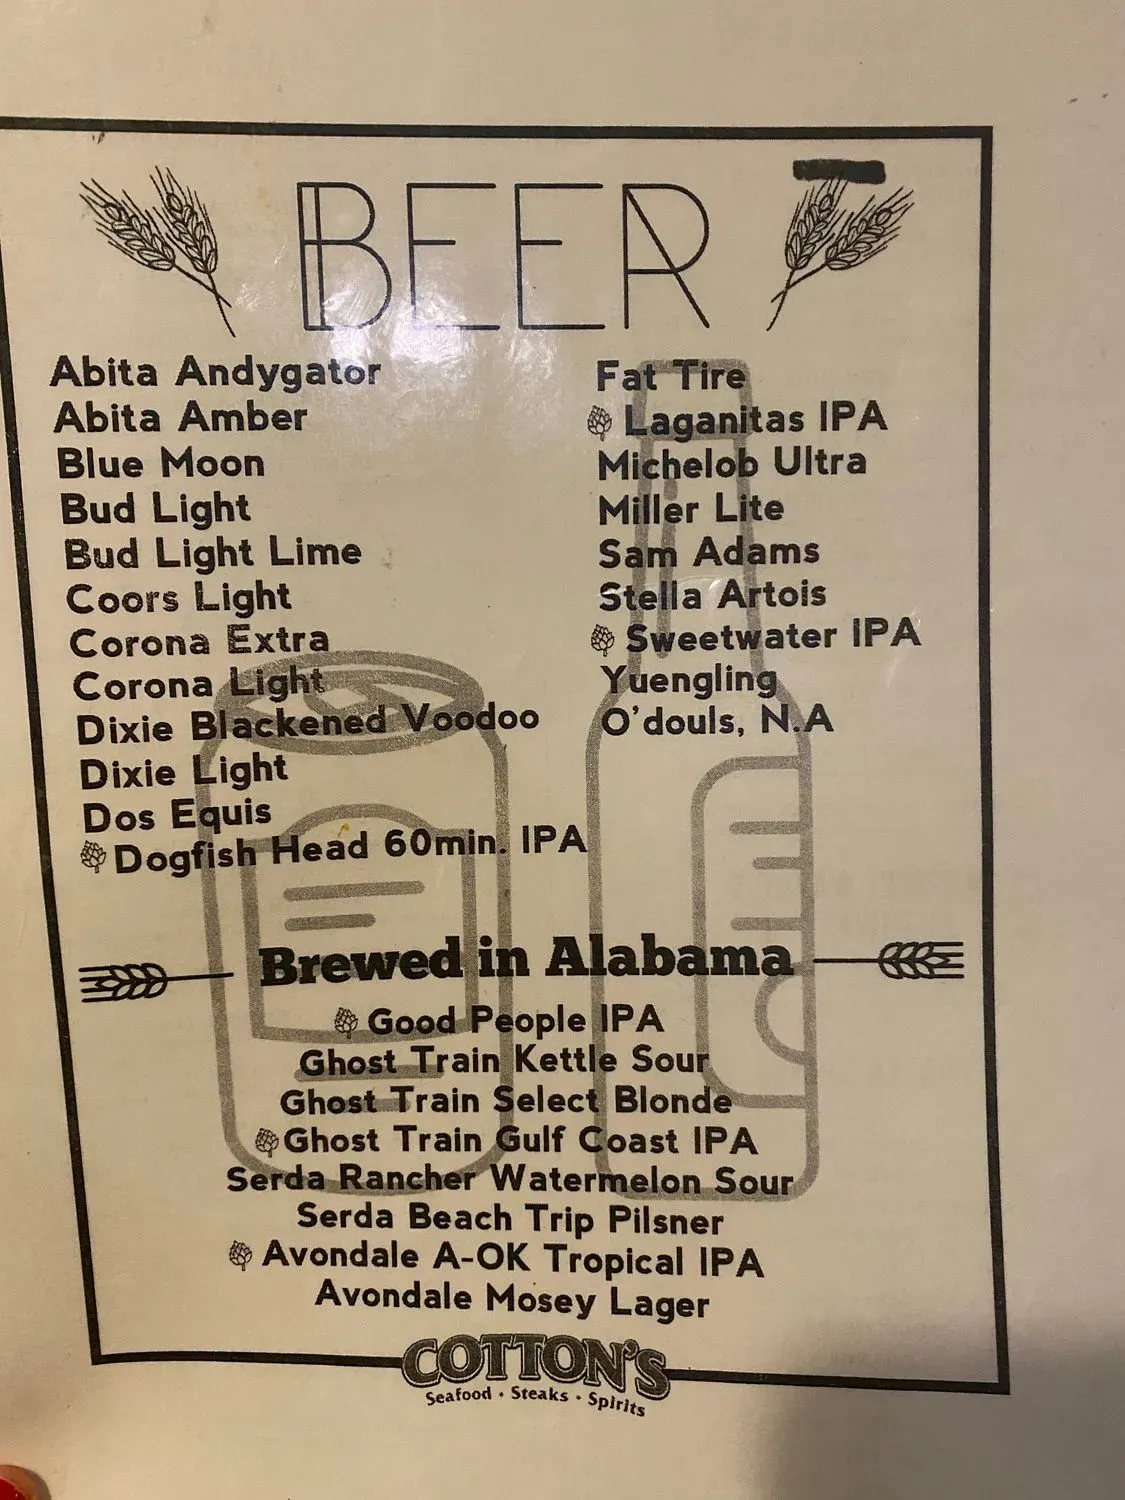 BEER
Abita Andygator
Abita Amber
Blue Moon
Bud Light
Bud Light Lime
Coors Light
Corona Extra
Corona Light
Dixie Blackened Voodoo
Dixie Light
Dos Equis
Dogfish Head 60min. IPA
Fat Tire
Laganitas IPA
Michelob Ultra
Miller Lite
Sam Adams
Stella Artois
Sweetwater IPA
Yuengling
O'douls, N.A
Brewed in Alabama
Good People IPA
Ghost Train Kettle Sour
Ghost Train Select Blonde
Ghost Train Gulf Coast IPA
Serda Rancher Watermelon Sour
Serda Beach Trip Pilsner
Avondale A-OK Tropical IPA
Avondale Mosey Lager
COTTON'S
Seafood • Steaks • Spirits